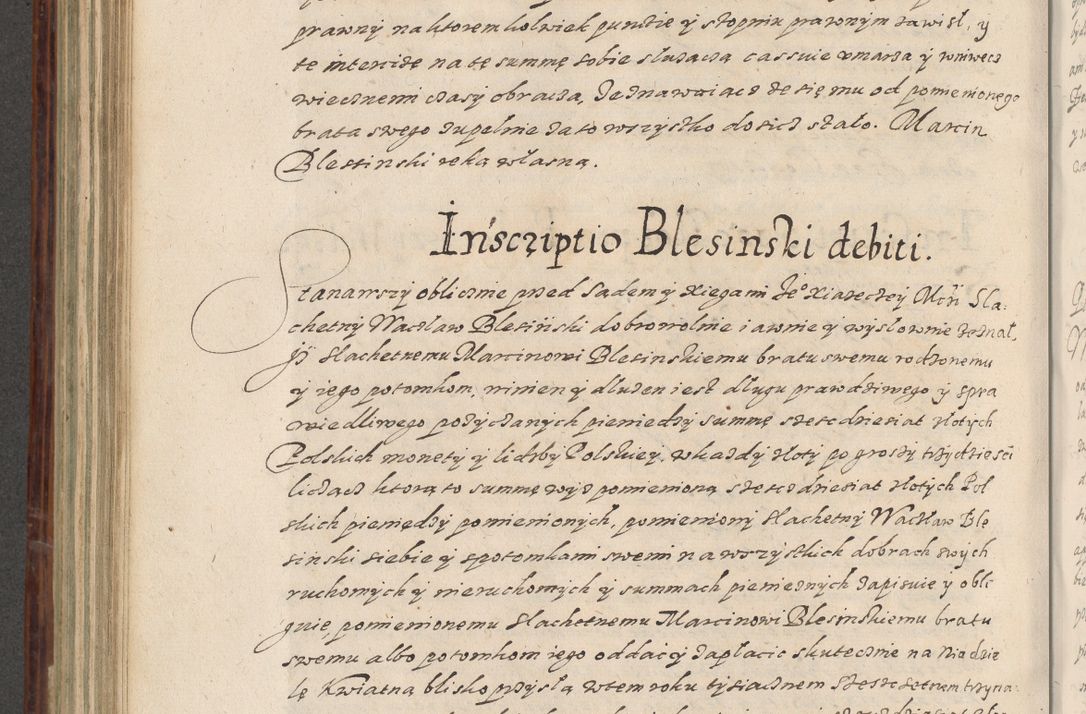 prawny na ktorem kolwiek punctie y stopniu prawnym zawisł, y
te intercizę na tę summę sobie sluzacza cassuie vmarza y wniwecz
wiecznemi czasy obracza, Zeznawaiacz ze się mu od pomienionego
brata swego zupelnie za to wszystko dosicz stało. Marcin
Blesinski ręką własną.
Inscriptio Blesinski debiti.
Stanawszy oblicznie przed Sadem y Xięgami Jeº Xiazeczey Mczi Sla:
chetny Waczław Blesinski dobrowolnie iawnie y wyslownie zeznał,
Jż slachetnemu Marcinowi Blesinskiemu bratu swemu rodzonemu
y iego potomkom, winien y dluzen iest dlugu prawdziwego y spra
wiedliwego pozyczanych pieniedzy summę szescdziesiat złotych
Polskich monety y liczby Polskiey, w kazdy złoty po groszy trzydziesci
liczacz ktorą to summę wyz pomienioną szesczdziesiat złotych Pol
skich pieniędzy pomienionych, pomieniony slachetny Waczław Ble
sinski siebie y spotomkami swemi na wszystkich dobrach swych
ruchomych y nieruchomych y summach pienieznych zapisuie y obli
guie, pomienionemu slachetnemu Marcinowi Blesinskiemu bratu
swemu albo potomkom iego oddacz y zaplacic skutecznie na Niedzie
lę Kwiatną blisko przyslą w tem roku tysiacznem szescsetnem trzyna: